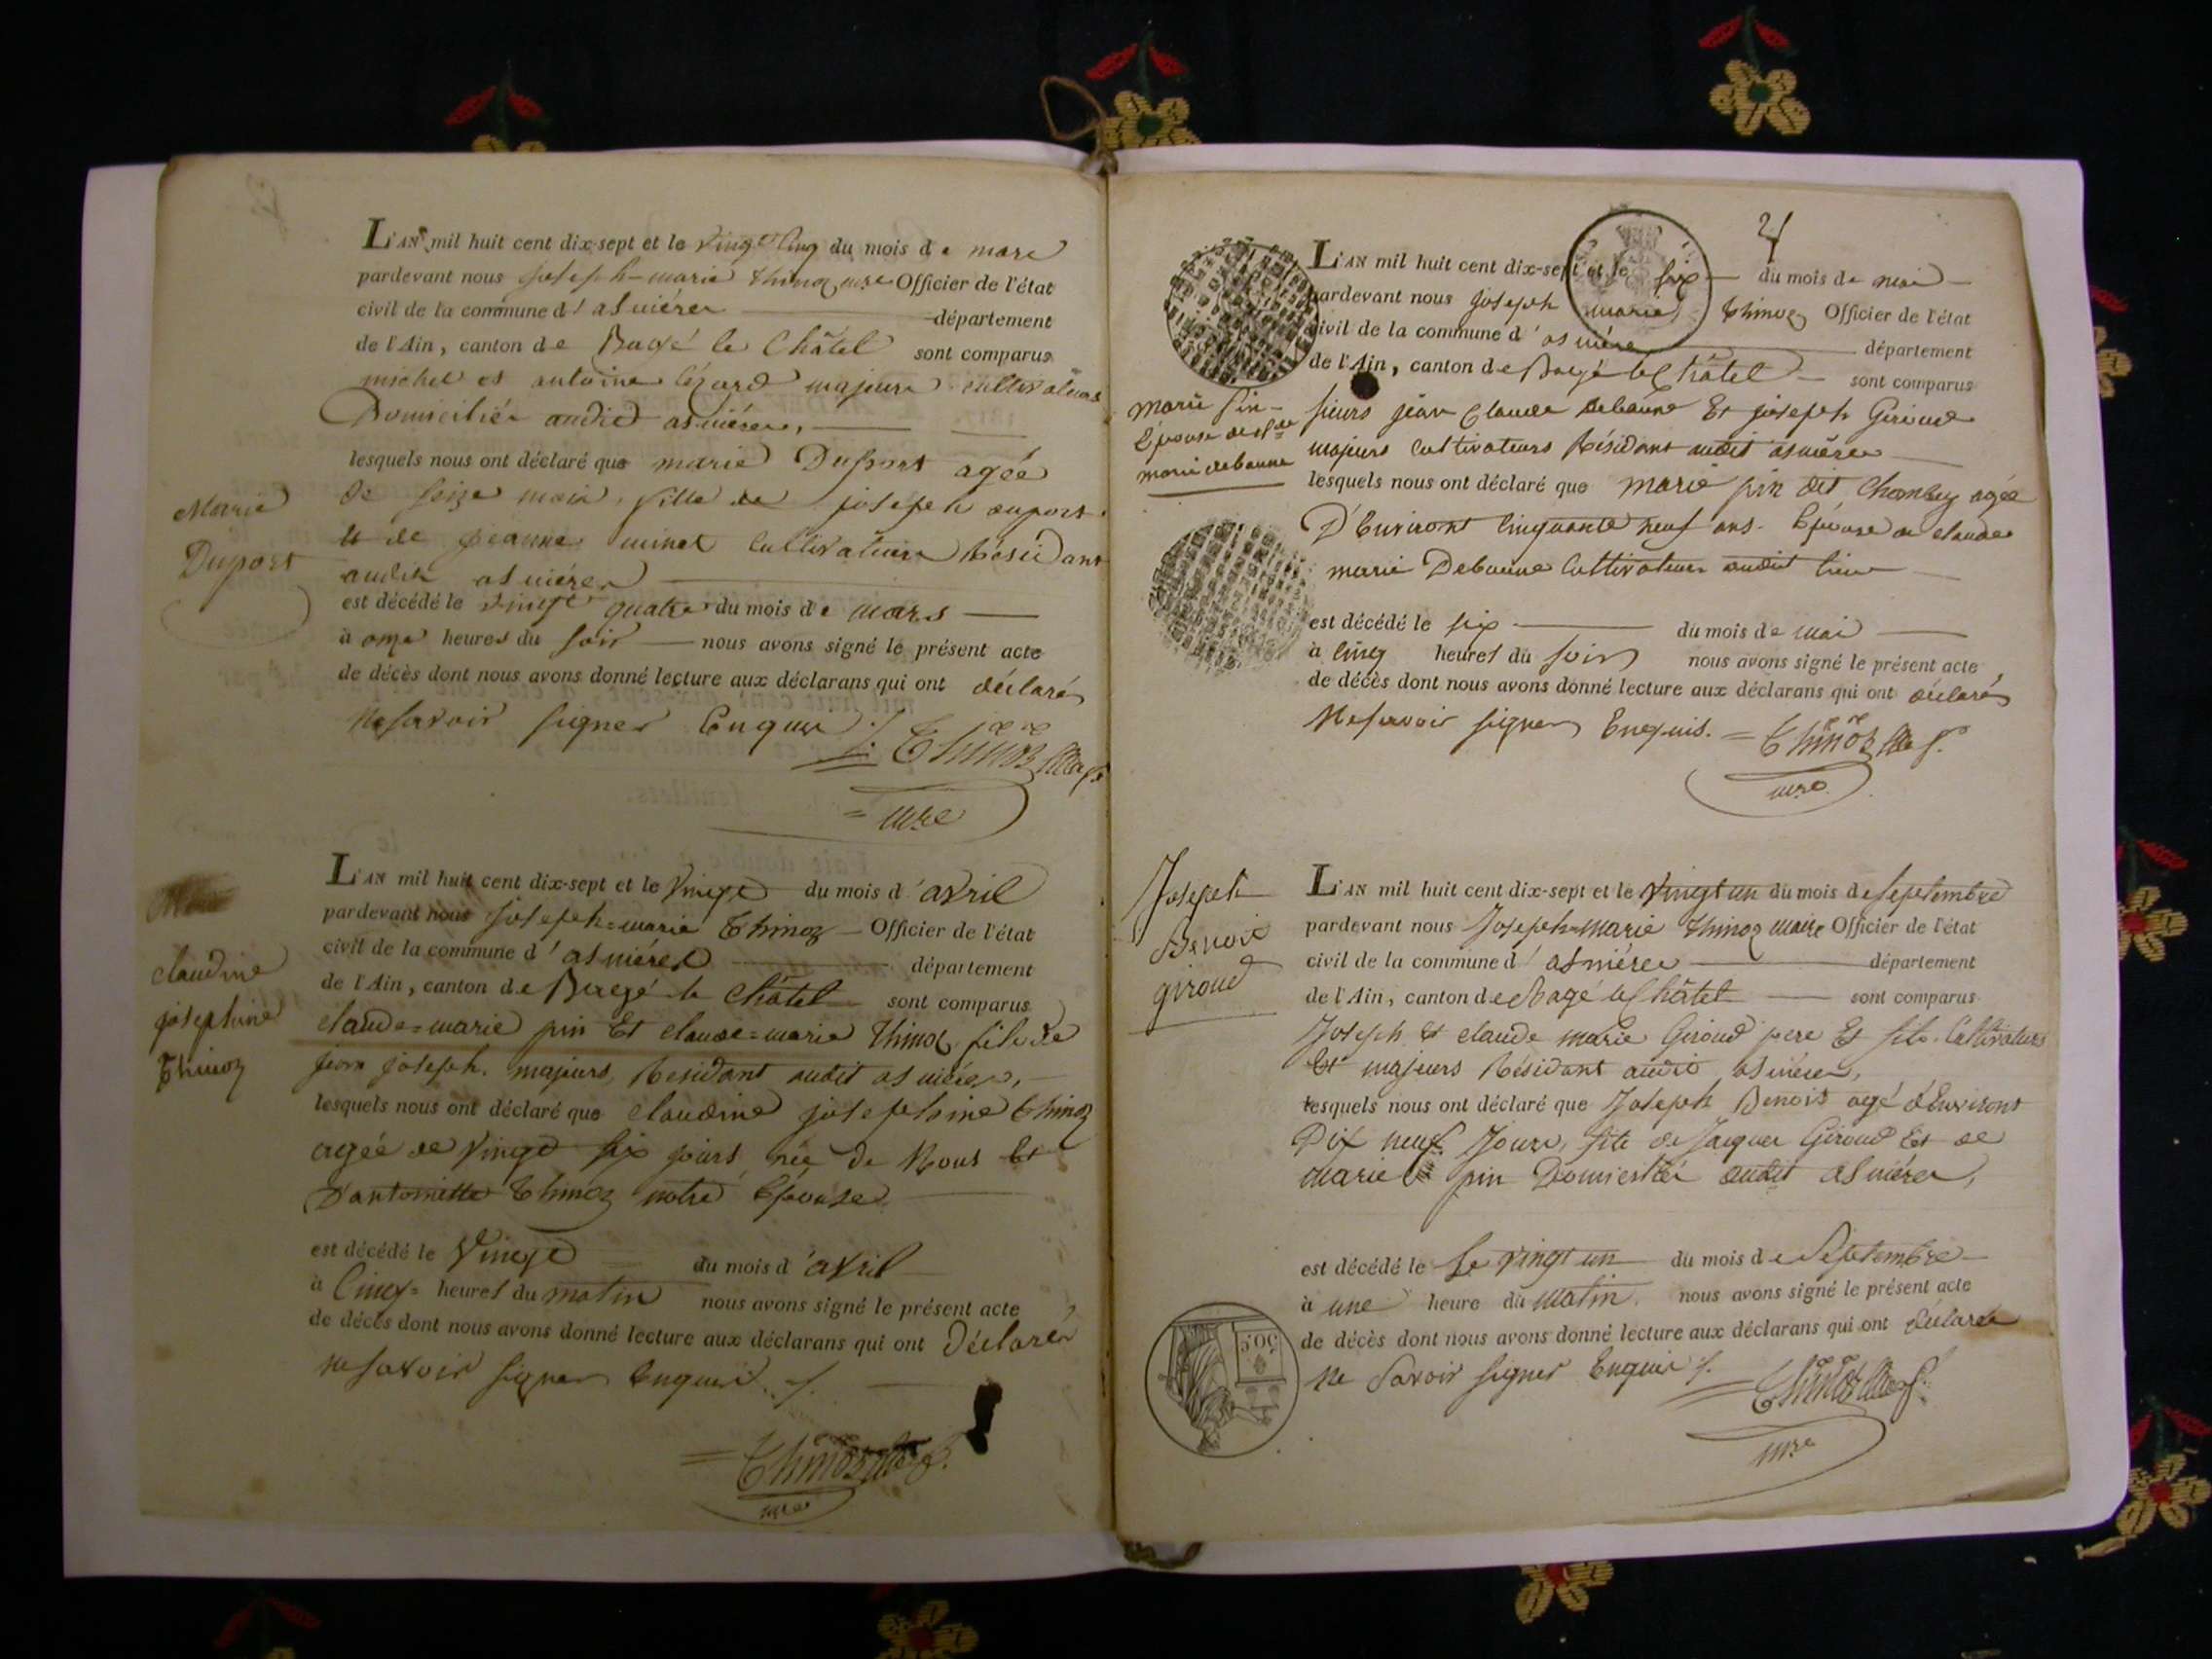 L'AN mil huit cent dix-sept et le vingt cinq du mois de mars
pardevant nous joseph-marie thinoz mre Officier de l'état
civil de la commune d'asniéres département
de l'Ain, canton de Bagé le Châtel sont comparus
michel et antoine lézard majeurs cultivateurs
Domiciliés audit asniéres,
lesquels nous ont déclaré que marie Duport agée
de seize mois, fille de joseph duport
et de jeanne minet cultivateurs Résidant
audit asniéres
est décédé le vingt quatre du mois de mars
à onze heures du soir nous avons signé le présent acte
de décès dont nous avons donné lecture aux déclarans qui ont déclarés
ne savoir signer Enquis
Thinoz
mre
Marie
Duport
L'AN mil huit cent dix-sept et le vingt du mois d'avril
pardevant nous joseph=marie Thinoz Officier de l'état
civil de la commune d'asniéres département
de l'Ain, canton de Baegé le Châtel sont comparus
claude=marie pin Et claude=marie thinoz fils de
jean joseph. majeurs, Residant audit asniéres,
lesquels nous ont déclaré que claudine josephine thinoz
agée de vingt six jours née de Nous Et
D'antoinette Thinoz notre Epouse
est décédé le vingt du mois d'avril
à cinq= heures du matin nous avons signé le présent acte
de décès dont nous avons donné lecture aux déclarans qui ont Déclarés
ne savoir signer Enquis
Thinoz
mre
claudine
josephine
Thinoz
L'AN mil huit cent dix-sept et le six du mois de mai
pardevant nous joseph marie Thinoz Officier de l'état
civil de la commune d'asniére département
de l'Ain, canton de Baegé le Châtel sont comparus
sieurs jean Claude debaune Et joseph Giroud
majeurs cultivateurs Résidant audit asniéres
lesquels nous ont déclaré que marie pin dit Chambuz agée
D'Environt cinquante neuf ans. Epouse de claude
marie Debaune cultivateur audit lieu
est décédé le six du mois de mai
à cinq heures du soir nous avons signé le présent acte
de décès dont nous avons donné lecture aux déclarans qui ont déclarés
Ne savoir signer Enquis.
Thinoz
mre
marie pin
Epouse de Cde
marie debaune
L'AN mil huit cent dix-sept et le vingt un du mois de septembre
pardevant nous Joseph=marie thinoz maire Officier de l'état
civil de la commune d'asniéres département
de l'Ain, canton de Bagé le Châtel sont comparus
Joseph Et claude marie Giroud pere Et fils. Cultivateurs
Et majeurs Résidant audit asniéres,
lesquels nous ont déclaré que Joseph Benoit agé d'Environt
Dix neuf Jours, fils de Jacques Giroud Et de
marie pin Domiciliés audit asniéres,
est décédé le Le vingt un du mois de Septembre
à une heure du matin. nous avons signé le présent acte
de décès dont nous avons donné lecture aux déclarans qui ont déclarés
Ne Savoir signer Enquis
Thinoz
mre
Joseph
Benoit
giroud
50c